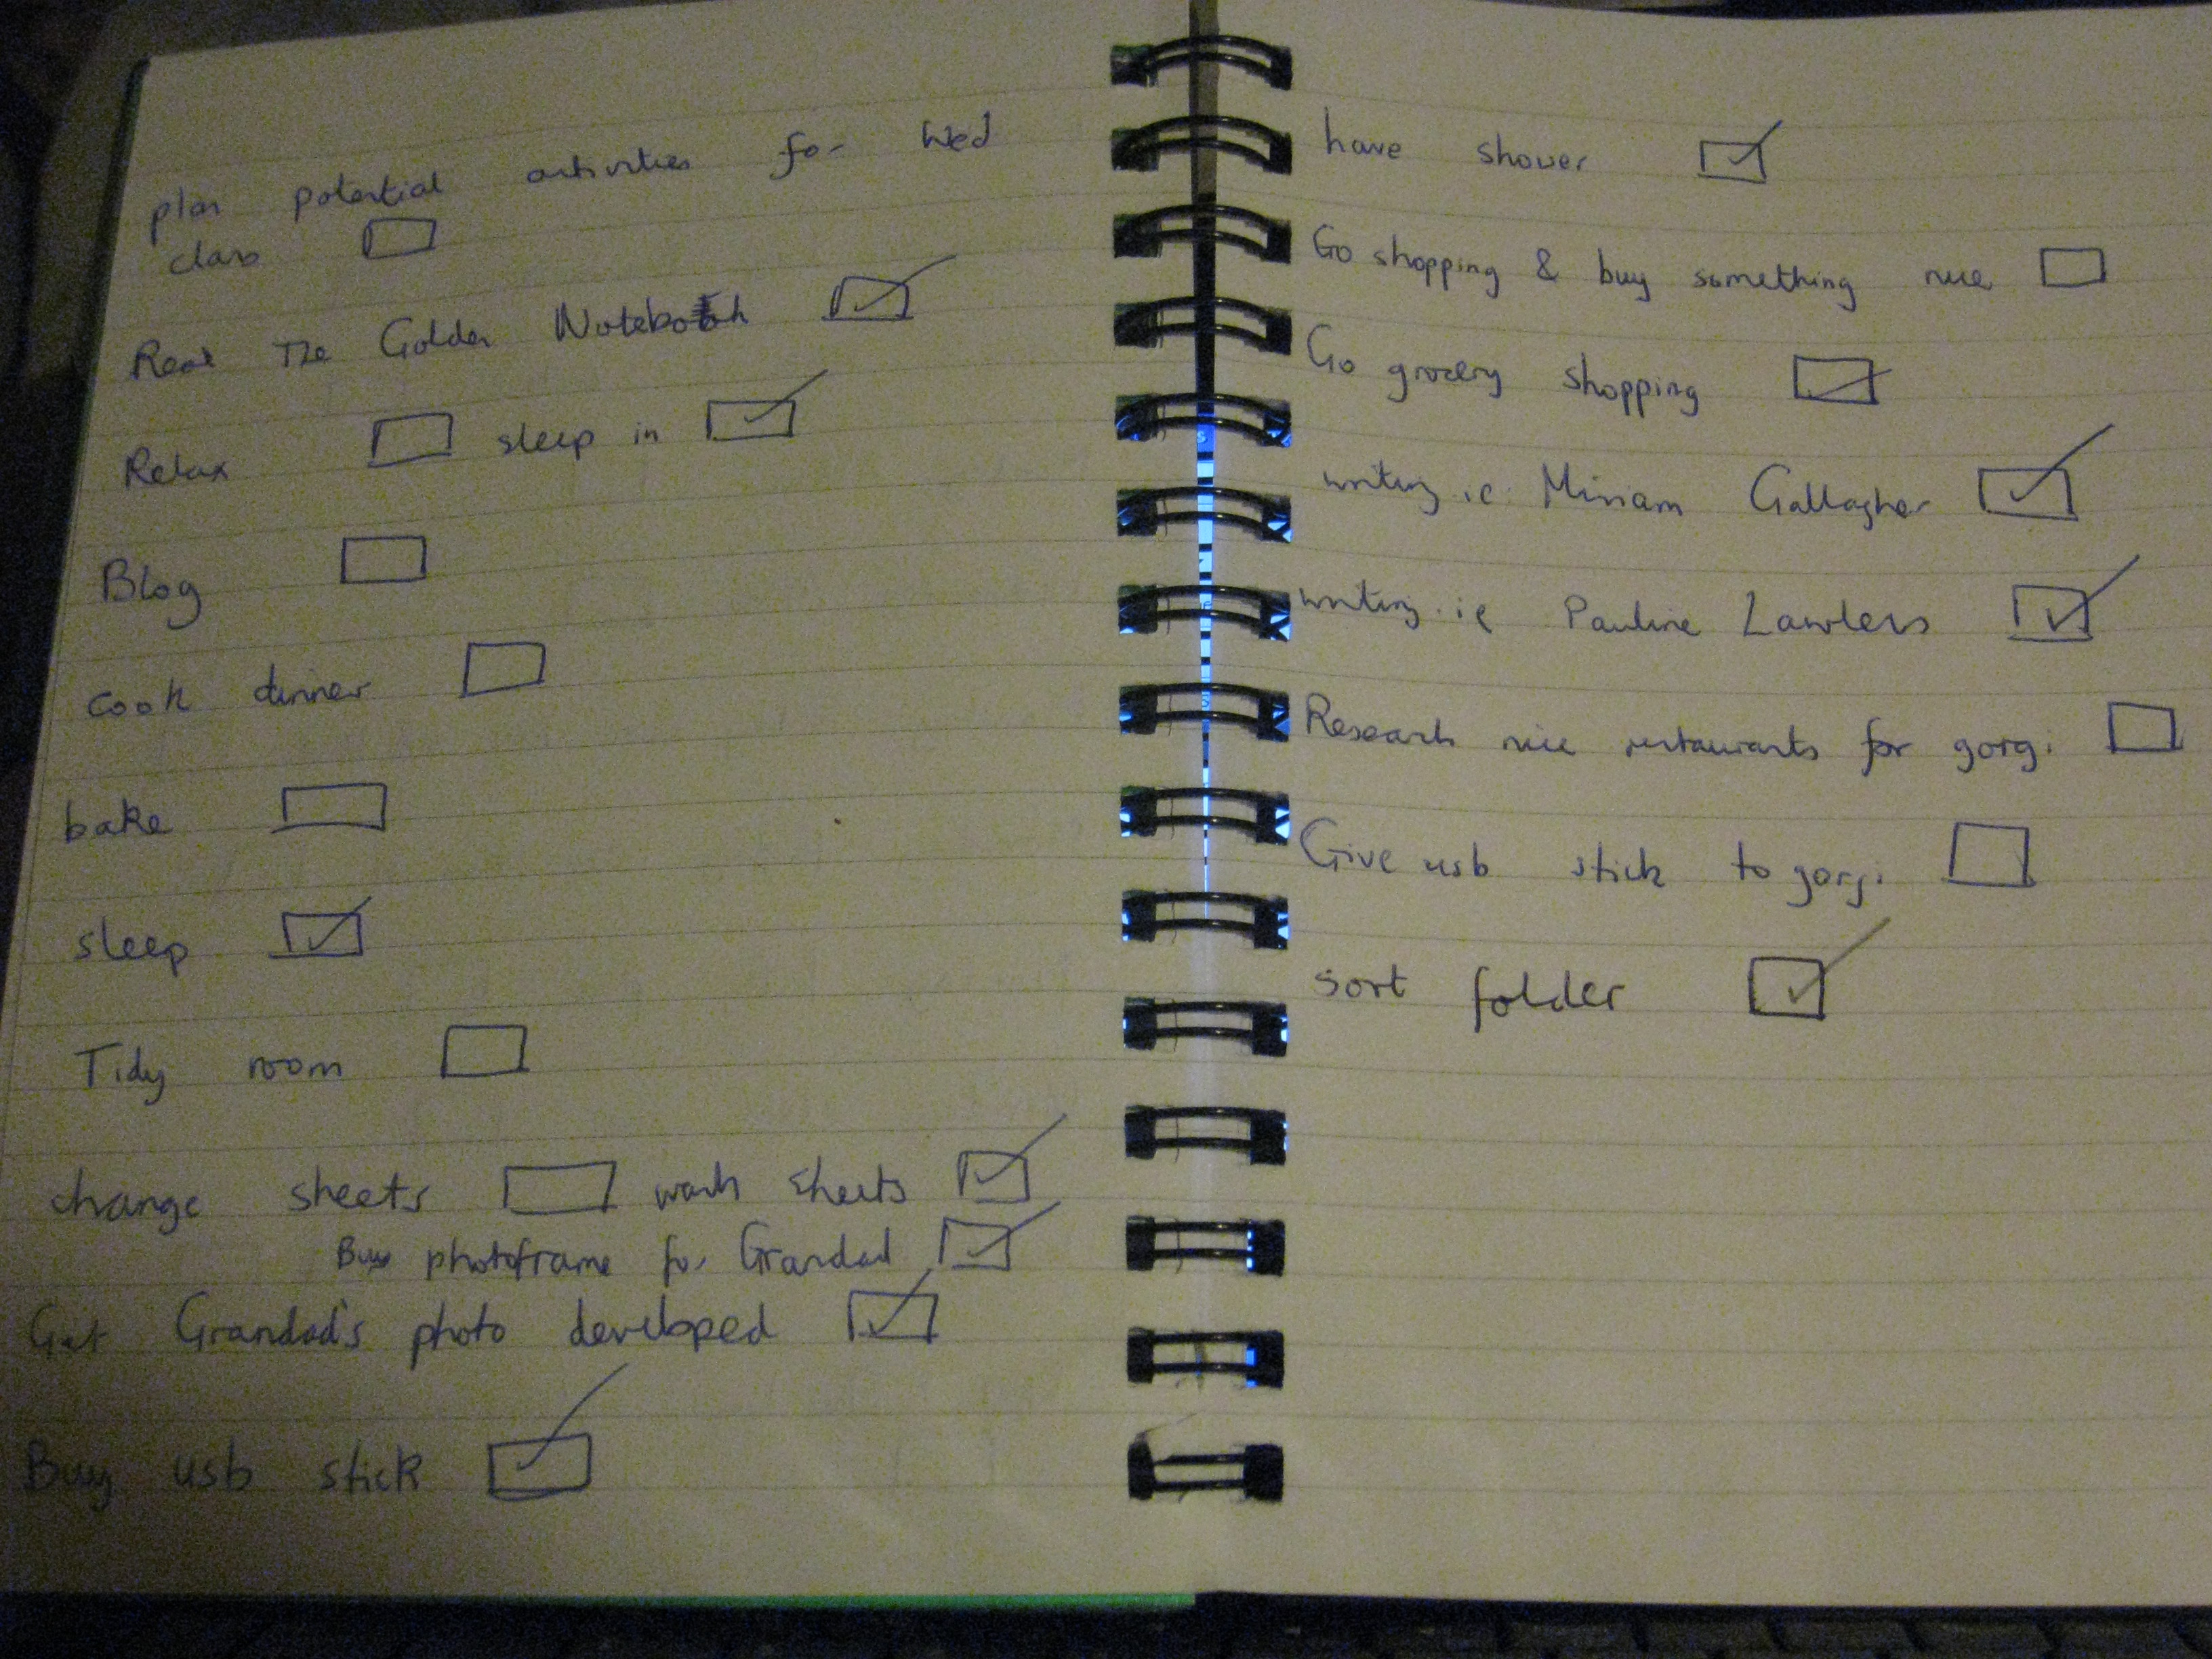 plan potential activities for Wed
class
Read The Golden Notebook
Relax sleep in
Blog
cook dinner
bake
sleep
Tidy room
change sheets wash sheets
Buy photoframe for Grandad
Get Grandad's photo developed
Buy usb stick
have shower
Go shopping & buy something nice
Go grocery shopping
writing.ie Miriam Gallagher
writing.ie Pauline Lawless
Research nice restaurants for gorg.
Give usb stick to gorg.
sort folder